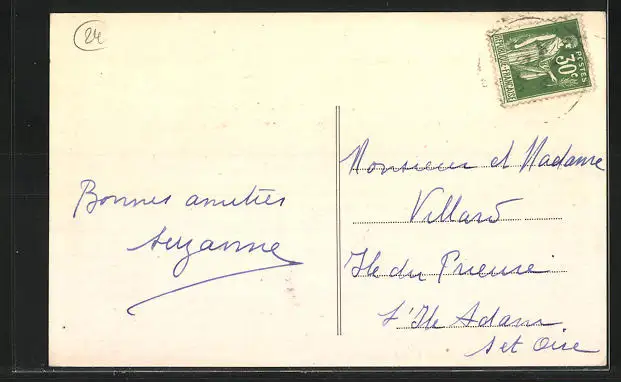 24
POSTES
30c
REPUBLIQUE FRANÇAISE
Bonnes amitiés
Suzanne
Monsieur et Madame
Villard
Ile du Prieuré
L'Ile Adam
S et Oise